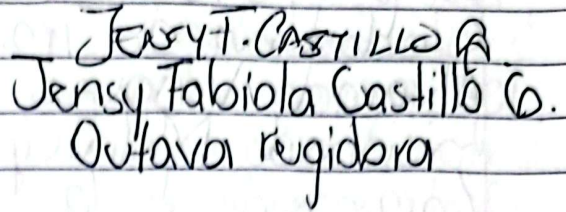 JENSY T. CASTILLO
Jensy Fabiola Castillo G.
Octava regidora